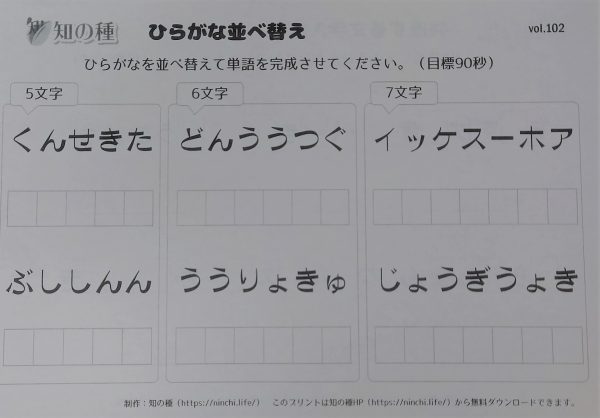 知の種 ひらがな並べ替え vol.102
ひらがなを並べ替えて単語を完成させてください。（目標90秒）
5文字 6文字 7文字
くんせきた どんううつぐ イッケスーホア
ぶししんん ううりょきゅ じょうぎうょき
制作：知の種（https://ninchi.life/） このプリントは知の種HP（https://ninchi.life/）から無料ダウンロードできます。